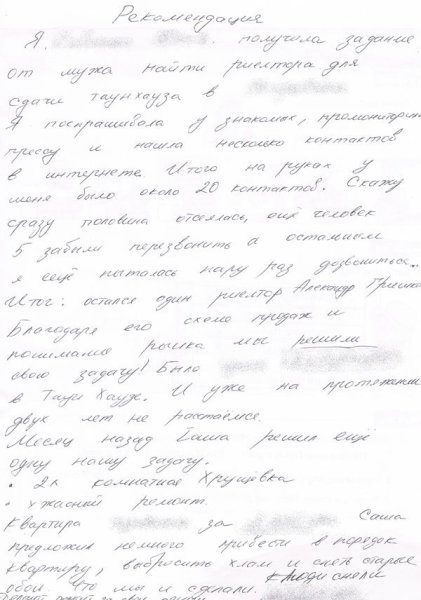 Рекомендация
Я. получила задание
от мужа найти риелтора для
сдачи таунхауза в
Я поспрашивала у знакомых, промониторила
прессу и нашла несколько контактов
в интернете. Итого на руках у
меня было около 20 контактов. Скажу
сразу половина отсеялась, ещё человек
5 забыли перезвонить а остальным
я ещё пыталась пару раз дозвониться...
Итог: остался один риелтор Александр
Благодаря его схеме продаж и
пониманию рынка мы решили
свою задачу! Было
в Таун Хаузе. И уже на протяжении
двух лет не расстаёмся.
Месяц назад Саша решил ещё
одну нашу задачу.
• 2х комнатная Хрущёвка
• ужасный ремонт.
Квартира за Саша
предложил немного привести в порядок
квартиру, выбросить хлам и снять старые
обои. Что мы и сделали.